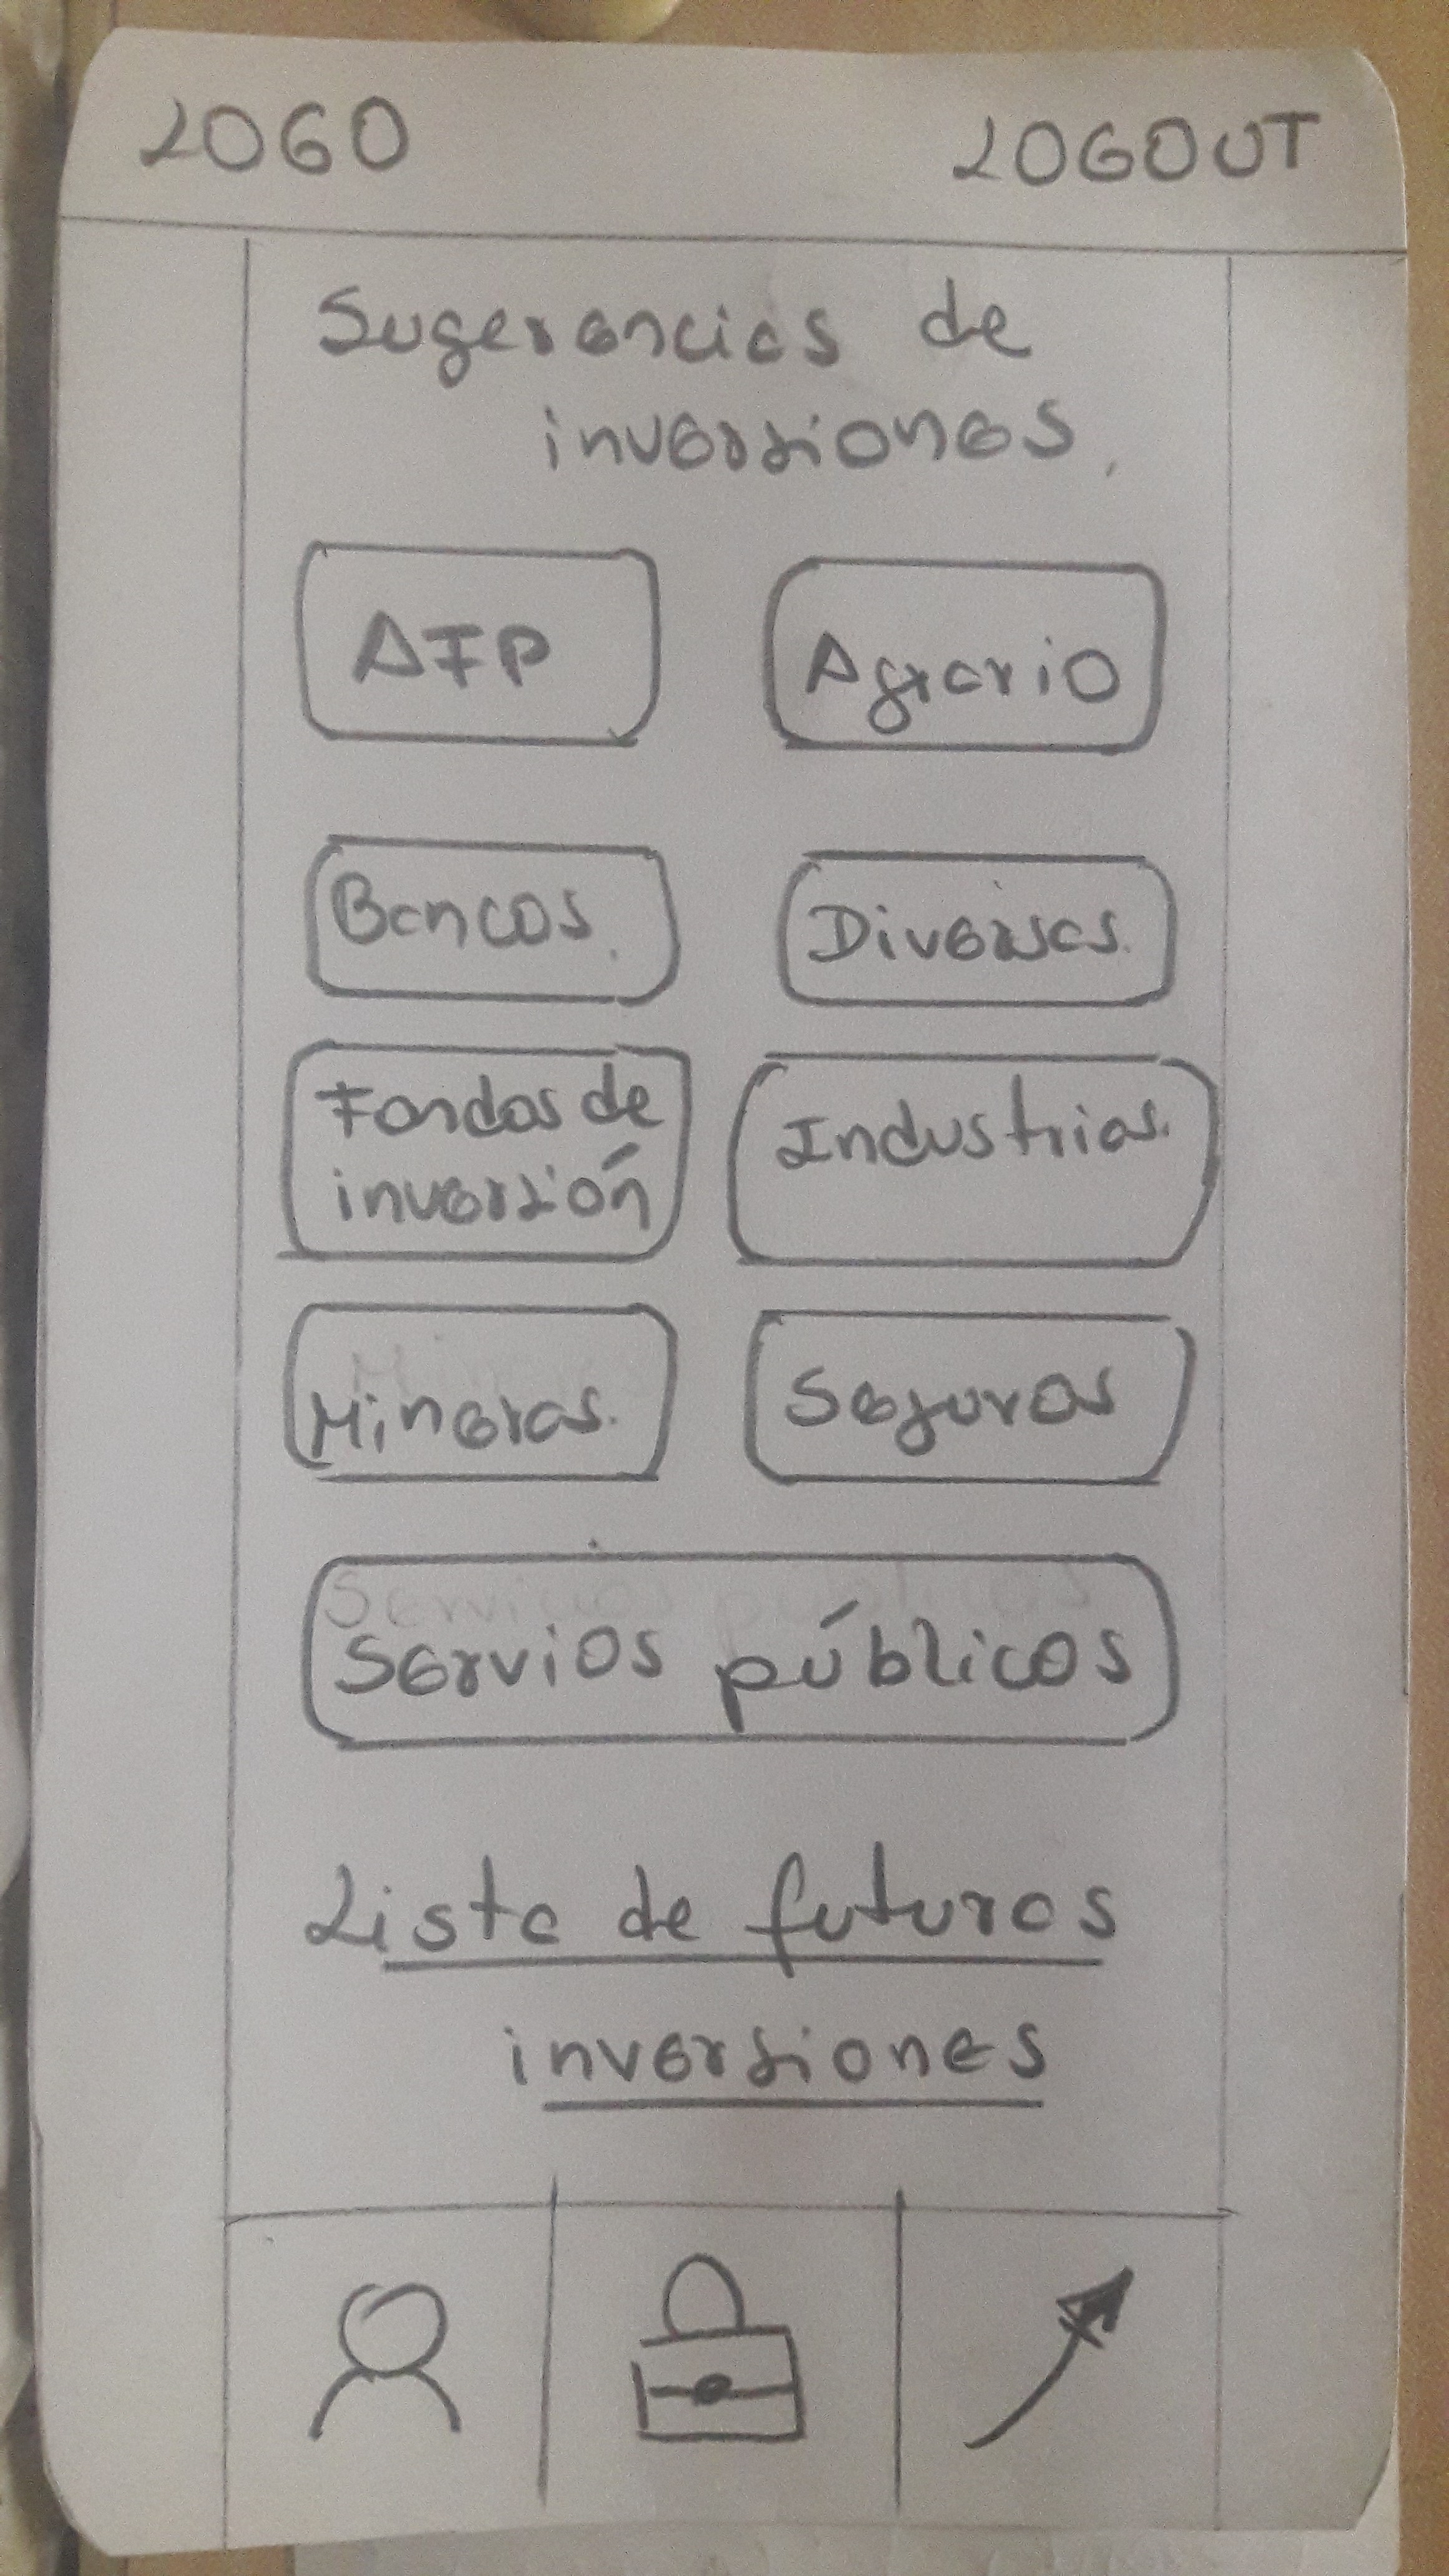 LOGO LOGOUT
Sugerencias de
inversiones.
AFP Agrario
Bancos. Diversas.
Fondos de Industrias.
inversión
Mineras. Seguros
Servicios públicos
Servios públicos
Lista de futuras
inversiones